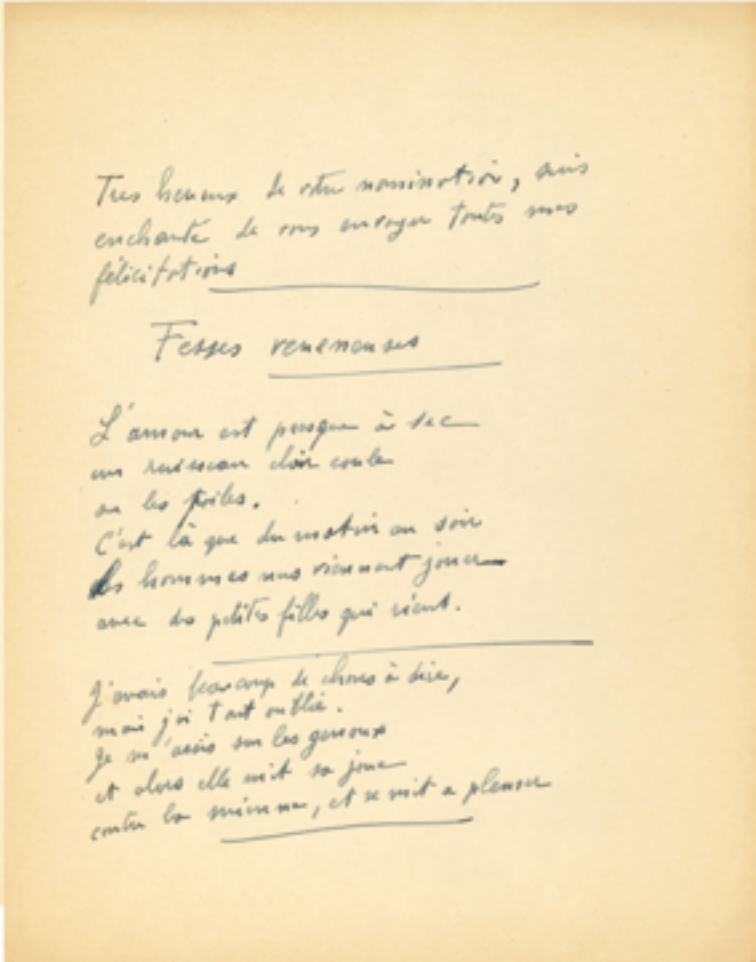 Tres heureux de votre nomination, suis
enchanté de vous envoyer toutes mes
félicitations
Fesses venenouses
L'amour est presque à sec
un ruisseau clair coule
ou les
C'est là que du matin au soir
les hommes nus viennent jouer
avec des petites filles qui rient.
J'avais beaucoup de choses à dire,
mais j'ai tout oublié.
Je m'assis sur les genoux
et alors elle mit sa joue
contre la mienne, et se mit a pleurer